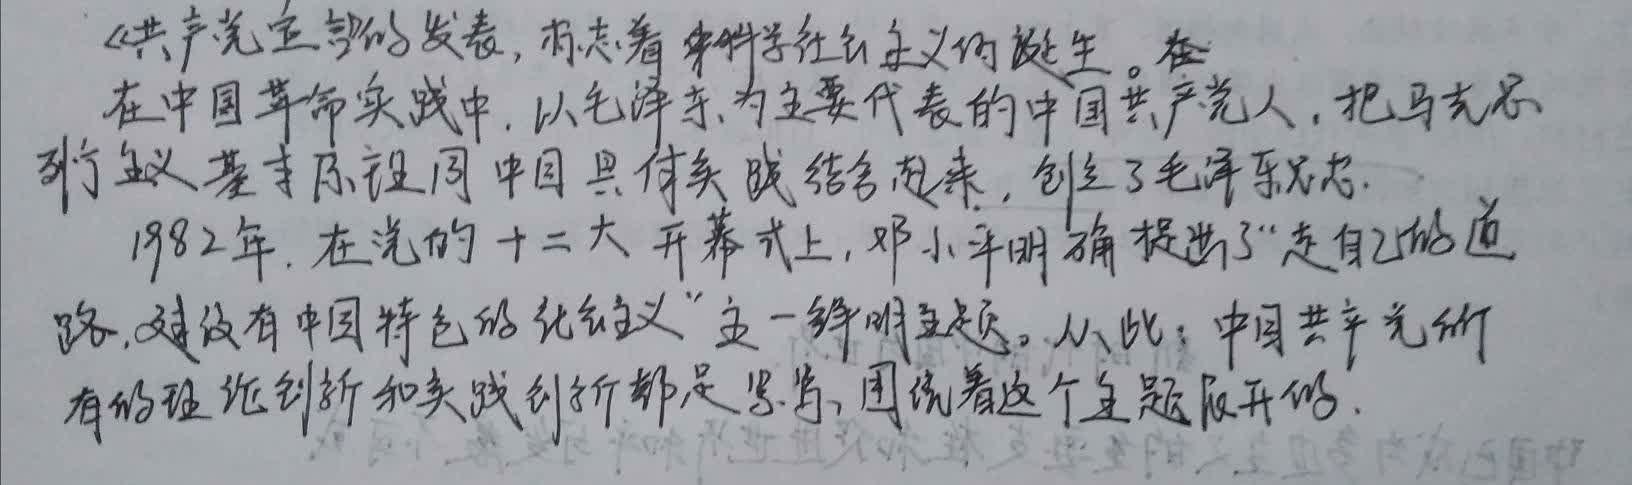 《共产党宣言》的发表，标志着科学社会主义的诞生。
在中国革命实践中，以毛泽东为主要代表的中国共产党人，把马克思
列宁主义基本原理同中国具体实践结合起来，创立了毛泽东思想.
1982年.在党的十二大开幕式上，邓小平明确提出了“走自己的道
路，建设有中国特色的社会主义”这一鲜明主题。从此，中国共产党所
有的理论创新和实践创新都是紧紧围绕着这个主题展开的.